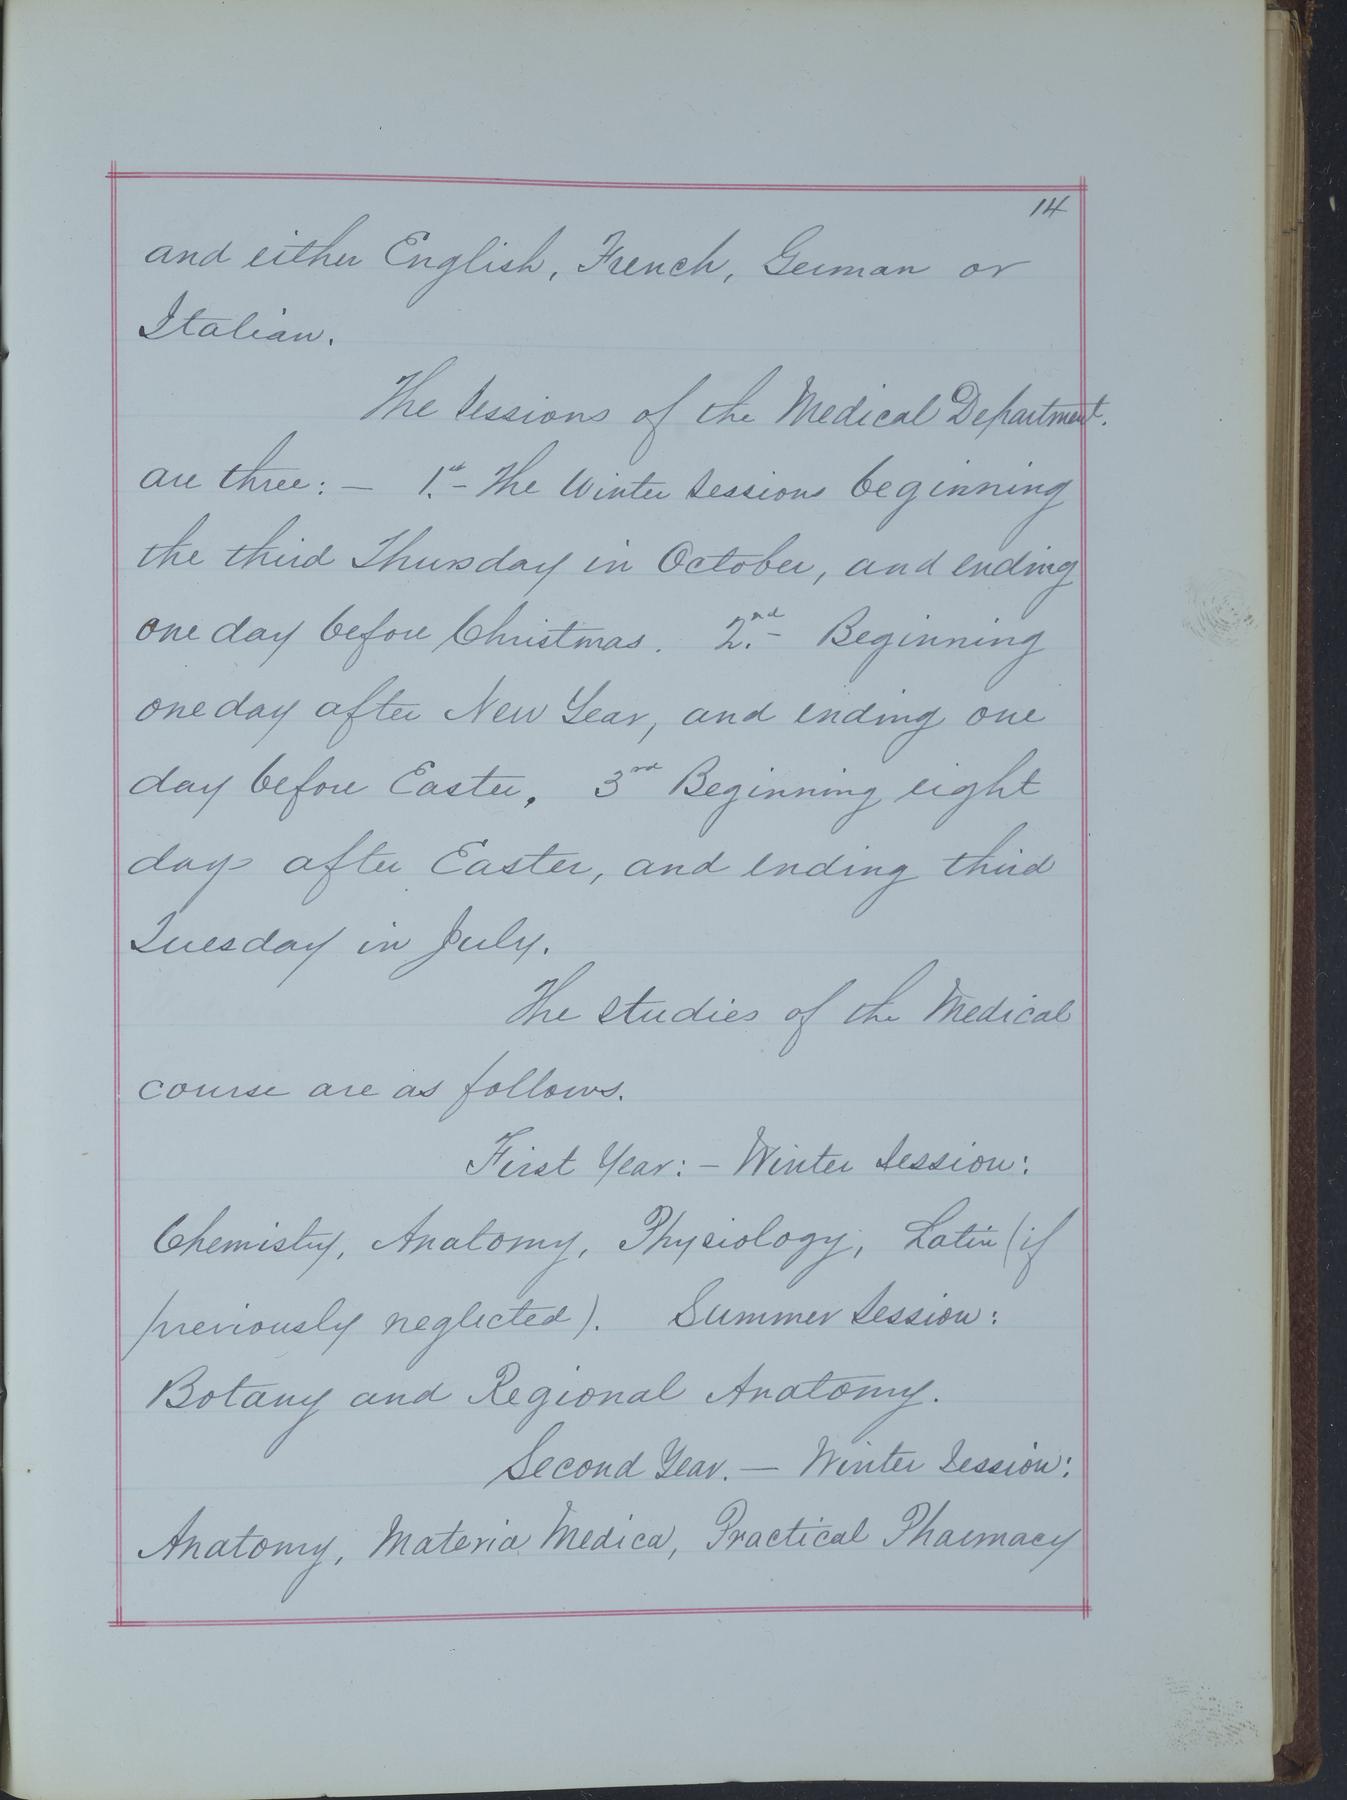 14
and either English, French, German or
Italian.
The Sessions of the Medical Department.
are three: — 1.st – The Winter Sessions beginning
the third Thursday in October, and ending
one day before Christmas. 2.nd – Beginning
one day after New Year, and ending one
day before Easter. 3rd Beginning eight
days after Easter, and ending third
Tuesday in July.
The studies of the Medical
course are as follows.
First Year: – Winter Session:
Chemistry, Anatomy, Physiology, Latin (if
previously neglected). Summer Session:
Botany and Regional Anatomy.
Second Year. — Winter Session:
Anatomy, Materia Medica, Practical Pharmacy